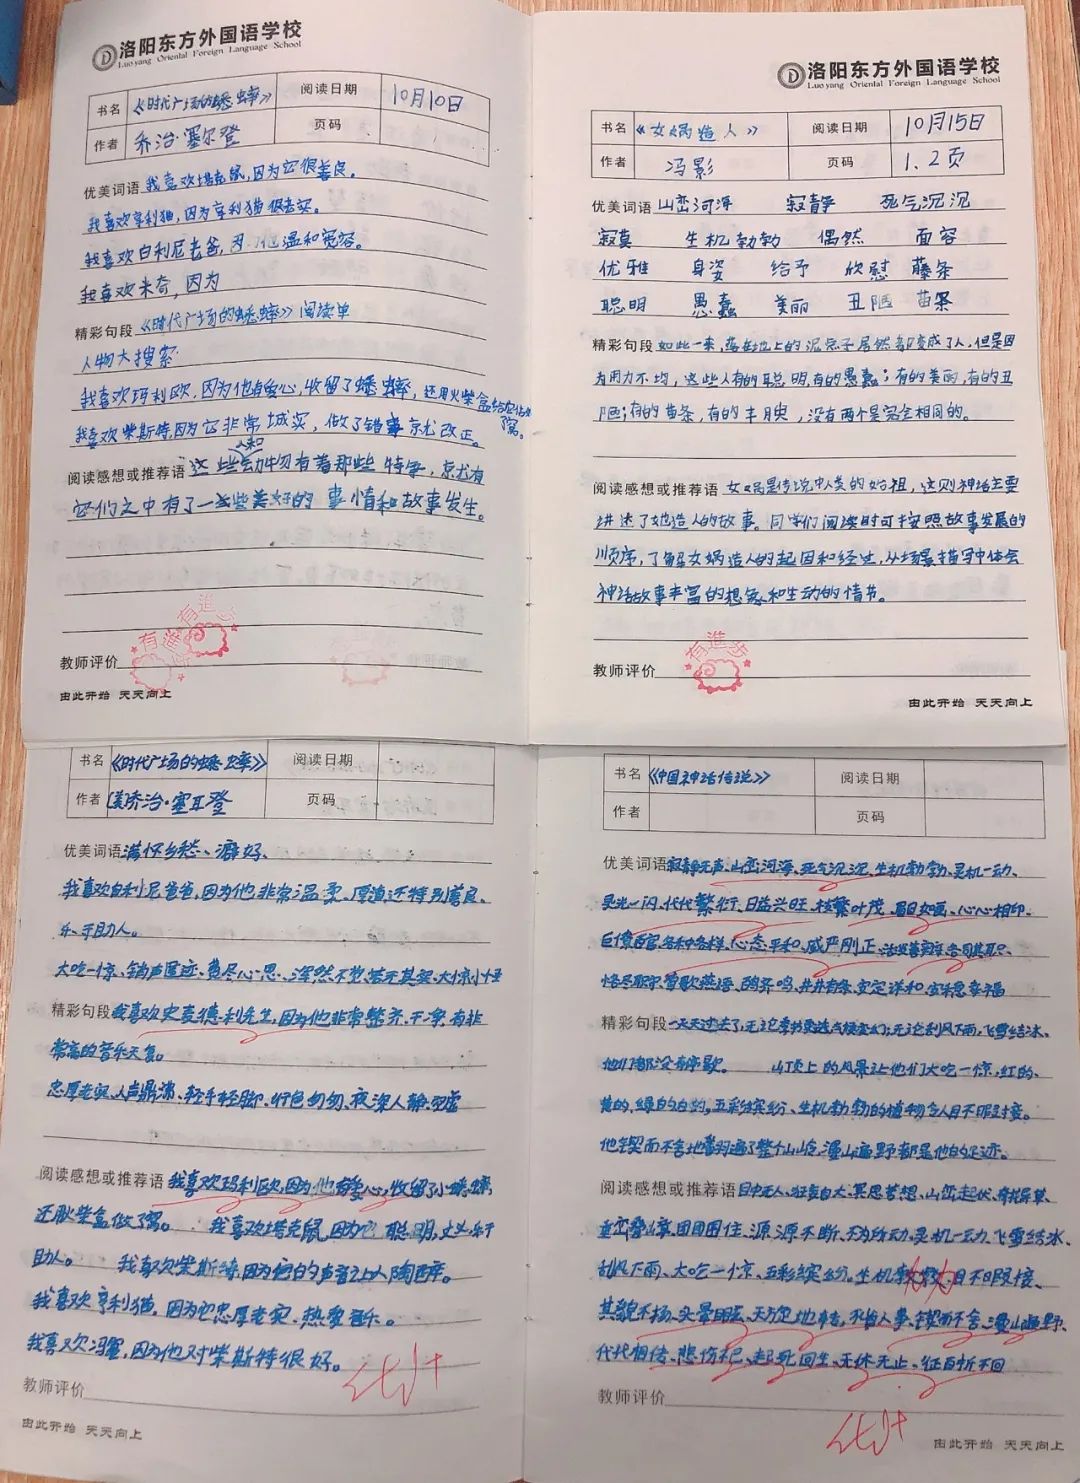 洛阳东方外国语学校
Luoyang Oriental Foreign Language School
书名 《时代广场的蟋蟀》 阅读日期 10月10日
作者 乔治·塞尔登 页码
优美词语 我喜欢塔克鼠,因为它很善良。
我喜欢亨利猫,因为亨利猫很老实。
我喜欢白利尼老爸,因为他温和宽容。
我喜欢米奇,因为
精彩句段 《时代广场的蟋蟀》阅读单
人物大搜索
我喜欢玛利欧,因为他有爱心,收留了蟋蟀,还用火柴盒给它做了窝。
我喜欢柴斯特,因为它非常诚实,做了错事就改正。
阅读感想或推荐语 这些人和动物有着那些特点,就有
它们之中有了一些些美好的事情和故事发生。
有進步
有進步
教师评价
由此开始 天天向上
洛阳东方外国语学校
Luoyang Oriental Foreign Language School
书名 《女娲造人》 阅读日期 10月15日
作者 冯影 页码 1.2页
优美词语 山峦河海 寂静 死气沉沉
寂寞 生机勃勃 偶然 面容
优雅 身姿 给予 欣慰 藤条
聪明 愚蠢 美丽 丑陋 苗条
精彩句段 如此一来,落在地上的泥点子居然都变成了人,但是因
为用力不均,这些人有的聪明,有的愚蠢;有的美丽,有的丑
陋;有的苗条,有的丰腴,没有两个是完全相同的。
阅读感想或推荐语 女娲是传说中人类的始祖,这则神话主要
讲述了她造人的故事。同学们阅读时可按照故事发展的
顺序,了解女娲造人的起因和经过,从场景描写中体会
神话故事丰富的想象和生动的情节。
有進步
教师评价
由此开始 天天向上
书名 《时代广场的蟋蟀》 阅读日期
作者 [美]乔治·塞耳登 页码
优美词语 满怀乡愁、癖好、
我喜欢白利尼爸爸,因为他非常温柔、厚道还特别善良、
乐于助人。
大吃一惊、销声匿迹、费尽心思、浑然不觉、若无其事、大惊小怪
精彩句段 我喜欢史麦德利先生,因为他非常整齐、干净、有非
常高的音乐天氛。
忠厚老实、人声鼎沸、轻手轻脚、行色匆匆、夜深人静、空虚
阅读感想或推荐语 我喜欢玛利欧,因为他有爱心,收留了小蟋蟀,
还耿柴盒做了窝。 我喜欢塔克鼠,因为它聪明,乐于
助人。 我喜欢柴斯特,因为他的声音让人陶醉。
我喜欢亨利猫,因为它忠厚老实,热爱音乐。
我喜欢冯赛,因为他对柴斯特很好。
教师评价
由此开始 天天向上
书名 《中国神话传说》 阅读日期
作者 页码
优美词语 寂静无声、山峦河海、死气沉沉、生机勃勃、灵机一动、
灵光一闪、代代繁衍、日益兴旺、枝繁叶茂、眉目如画、心心相印、
百僚百官、各种各样、心态平和、威严刚正、各司其职、
恪尽职守、莺歌燕语、井井有条、安定祥和、幸福
精彩句段 一天天过去了,无论季节更迭气候变幻;无论刮风下雨,飞雪结冰、
他们都没有停歇。 山顶上的风景让他们大吃一惊,红的、
黄的,绿的白的,五彩缤纷、生机勃勃的植物令人目不暇接。
他锲而不舍地翻遍了整个山岭,漫山遍野都是他的足迹。
阅读感想或推荐语 目中无人、狂妄自大、冥思苦想、山峦起伏、奇花异草、
重峦叠嶂、团团围住、源源不断、无为所动、灵机一动、飞雪结冰、
刮风下雨、大吃一惊、五彩缤纷、生机勃勃、目不暇接、
其貌不扬、头晕眼花、天方地圆、不省人事、锲而不舍、漫山遍野、
代代相传、悲伤不已、起死回生、无休无止、征百折不回
教师评价
由此开始 天天向上